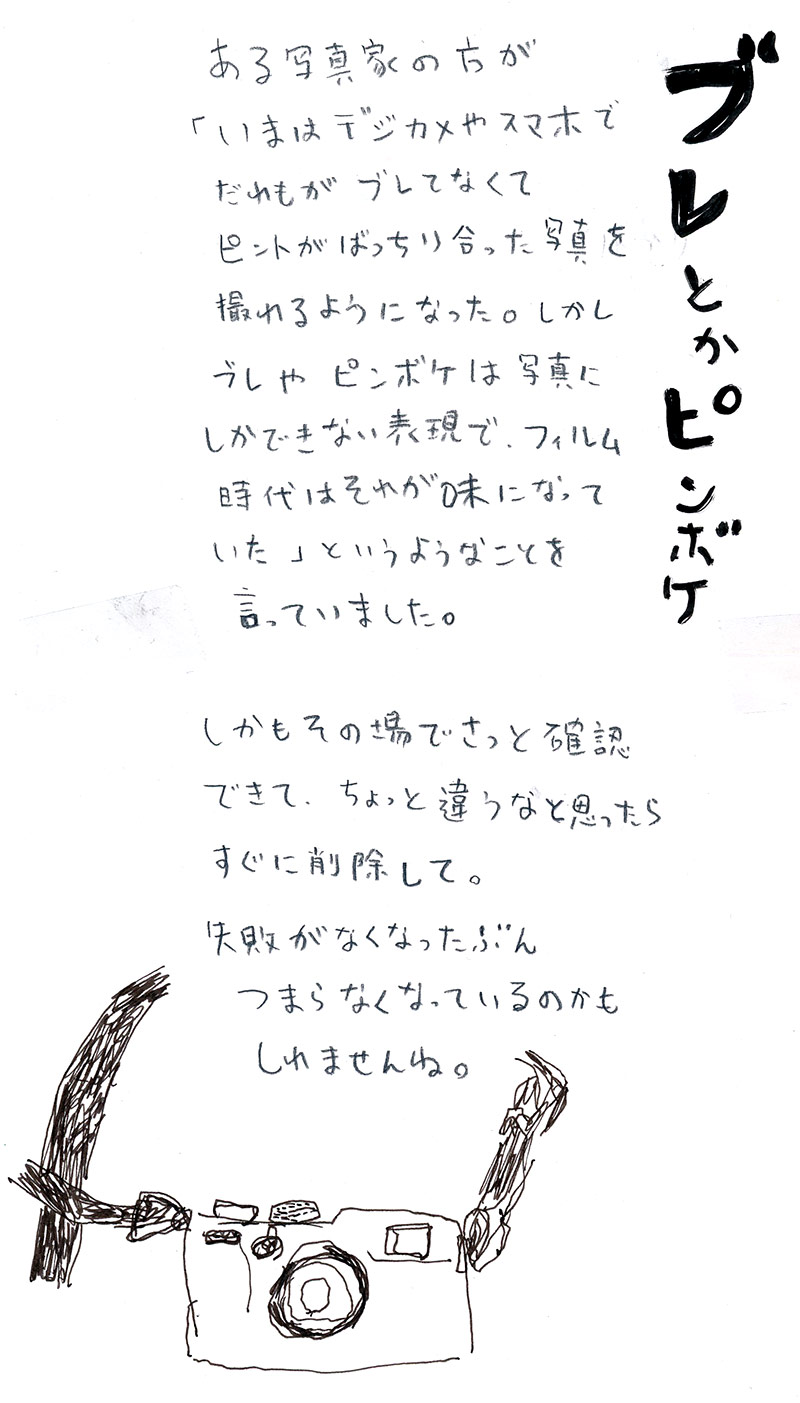 ブレとかピンボケ
ある写真家の方が
「いまはデジカメやスマホで
だれもがブレてなくて
ピントがばっちり合った写真を
撮れるようになった。しかし
ブレや ピンボケは写真に
しかできない表現で、フィルム
時代はそれが味になって
いた」というようなことを
言っていました。
しかもその場でさっと確認
できて、ちょっと違うなと思ったら
すぐに削除して。
失敗がなくなったぶん
つまらなくなっているのかも
しれませんね。